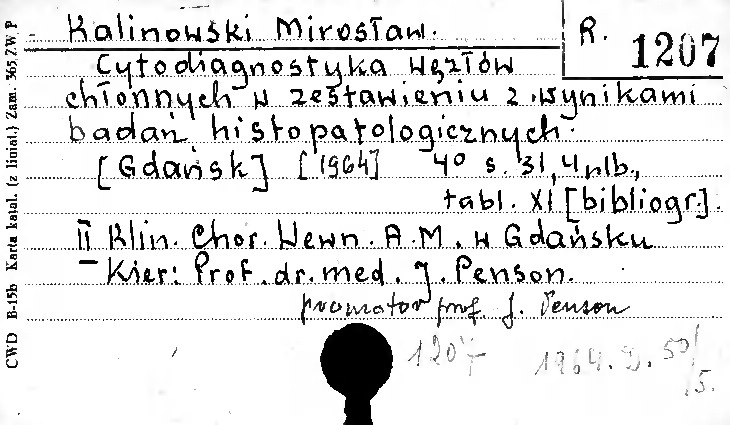 Kalinowski Mirosław.
R. 1207
Cytodiagnostyka węzłów
chłonnych w zestawieniu z wynikami
badań histopatologicznych.
[Gdańsk] [1964] 4° s. 31, 4 nlb.,
tabl. XI [bibliogr.].
II Klin. Chor. Wewn. A.M. w Gdańsku
- Kier: Prof. dr. med. J. Penson.
promotor prof. J. Penson
1207 1964. D. 50/5.
CWD B-15b Karta katal. (z liniat.) Zam. 365/ZW P